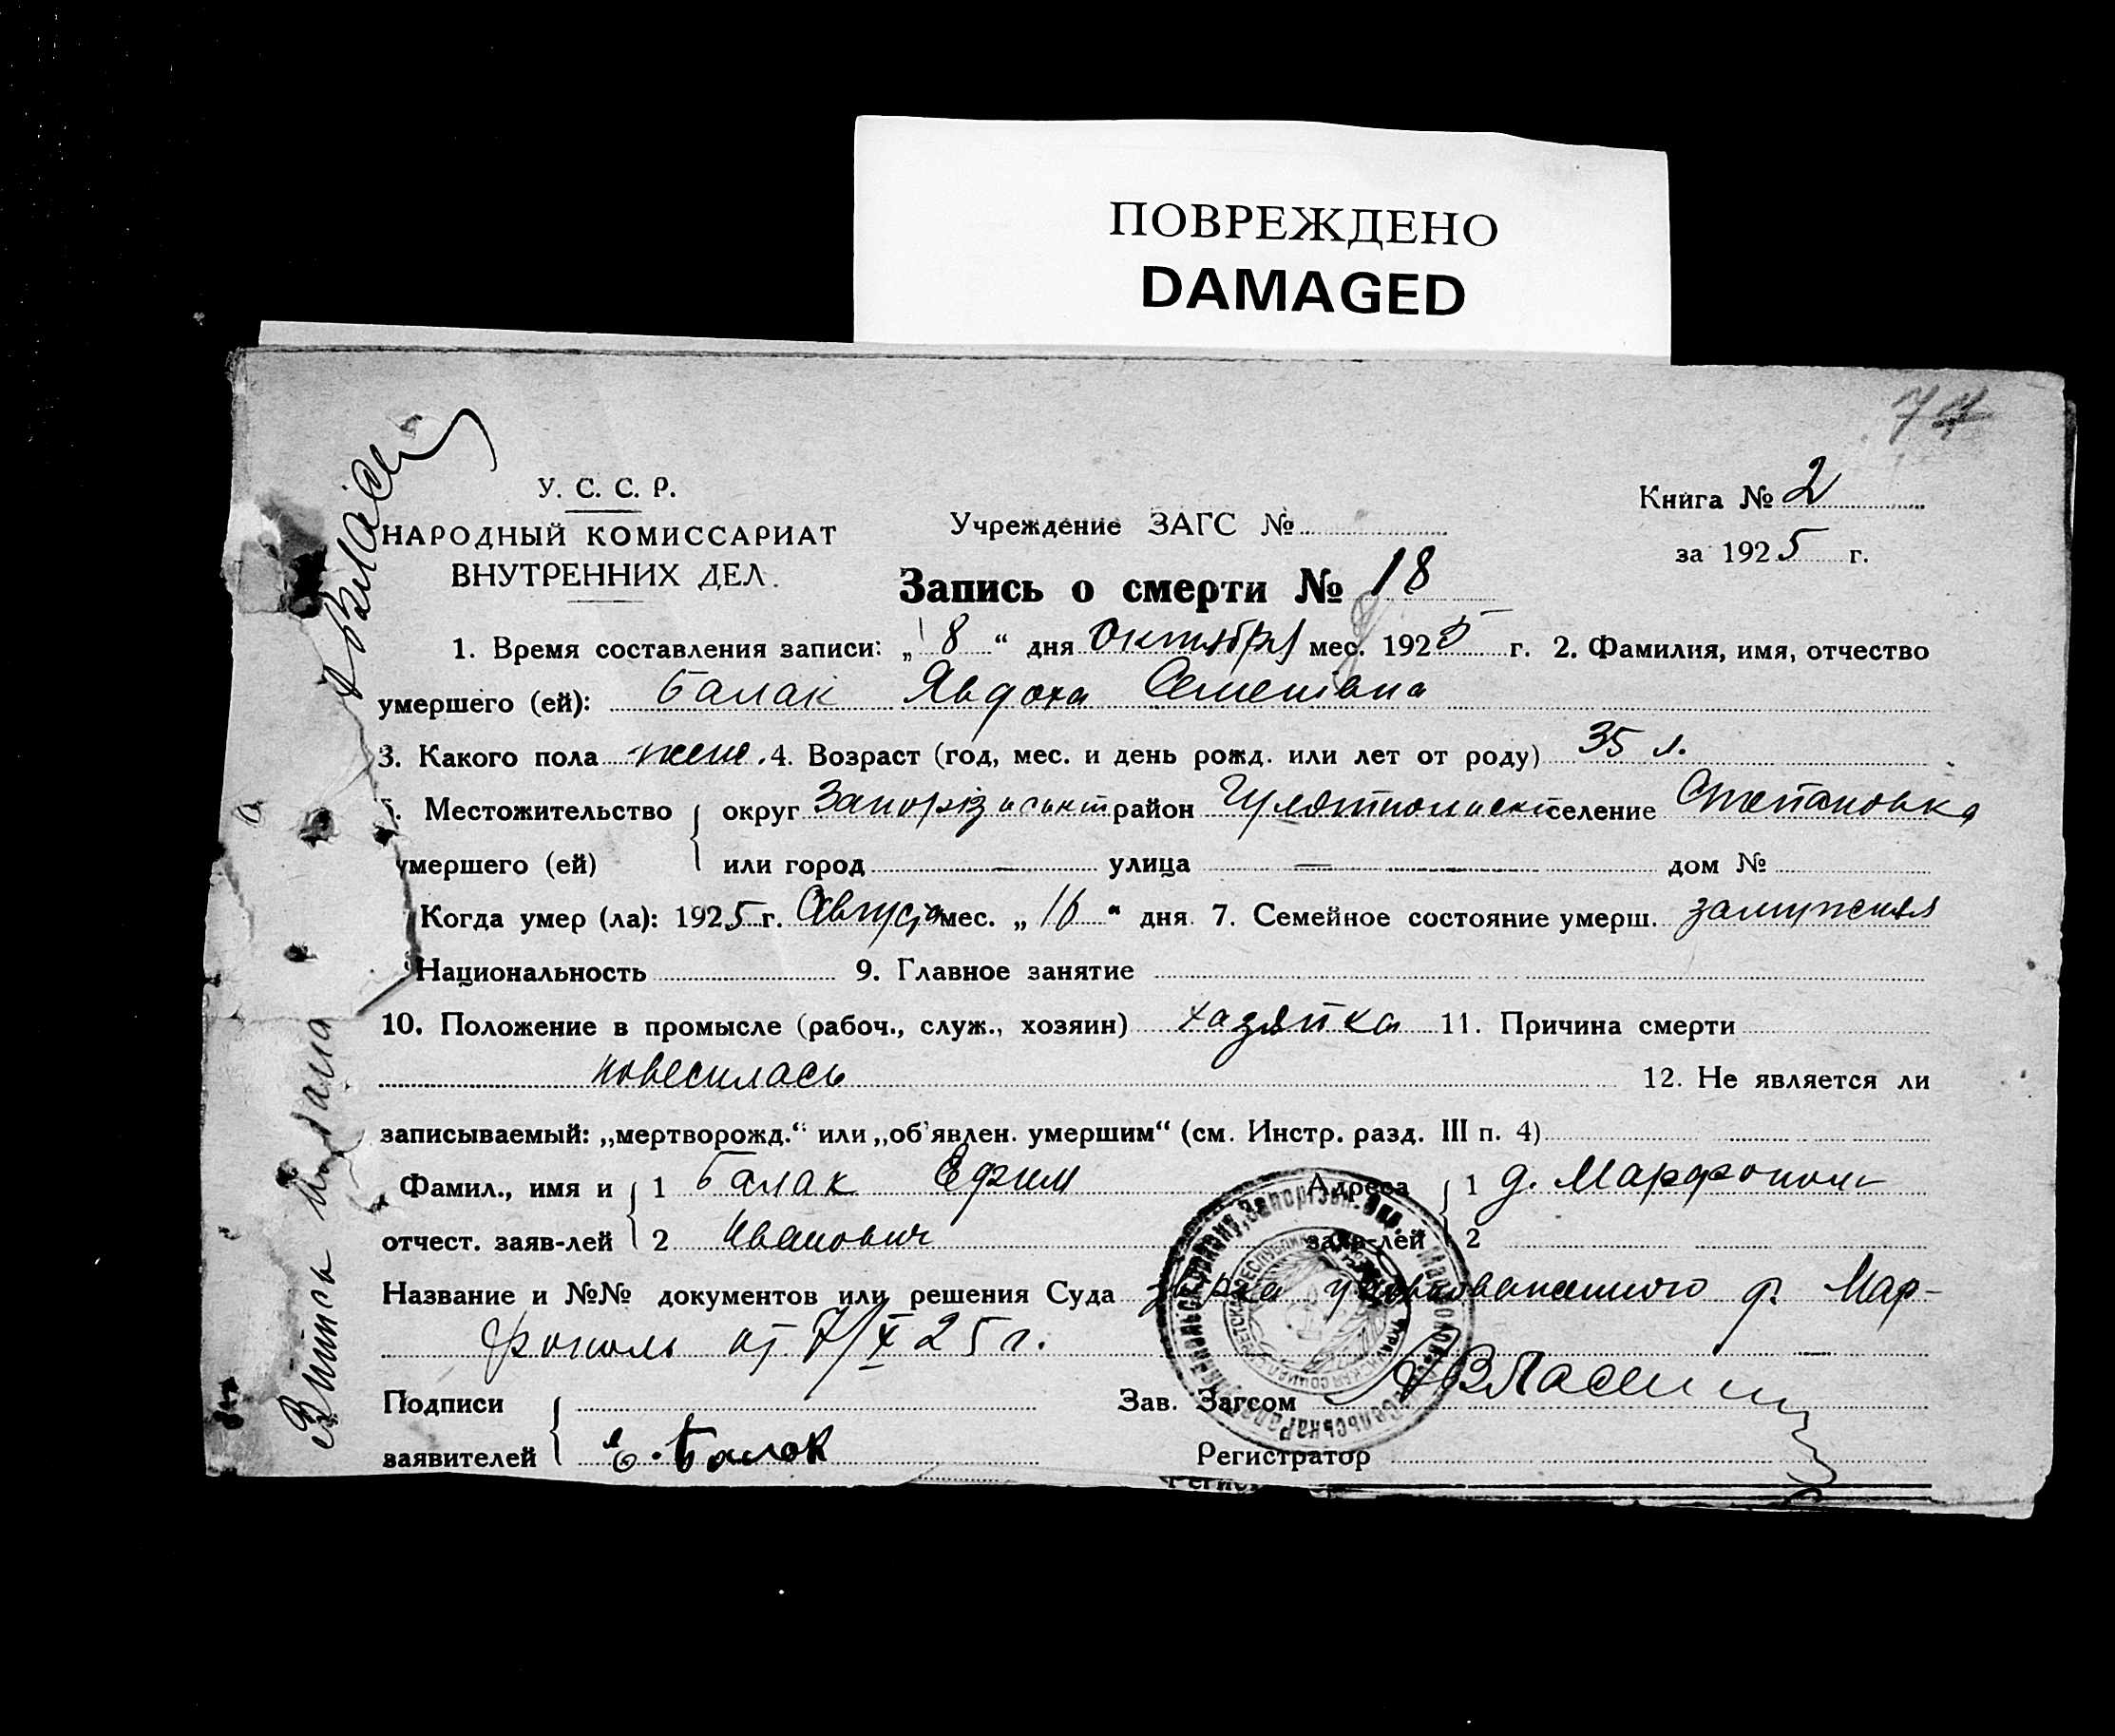 ПОВРЕЖДЕНО
DAMAGED
У. С. С. Р.
НАРОДНЫЙ КОМИССАРИАТ
ВНУТРЕННИХ ДЕЛ.
Учреждение ЗАГС №
Книга № 2
за 1925 г.
Запись о смерти № 18
1. Время составления записи: „ 8 “ дня октября мес. 1925 г. 2. Фамилия, имя, отчество
умершего (ей): Балак Явдоха Семеновна
3. Какого пола жен. 4. Возраст (год, мес. и день рожд. или лет от роду) 35 л.
Местожительство округ район селение Степановка
умершего (ей) или город — улица — дом №
Когда умер (ла): 1925 г. Августа мес. „ 16 “ дня 7. Семейное состояние умерш. замужняя
Национальность 9. Главное занятие
10. Положение в промысле (рабоч., служ., хозяин) хазяйка 11. Причина смерти
повесилась 12. Не является ли
записываемый: „мертворожд.“ или „об'явлен. умершим“ (см. Инстр. разд. III п. 4)
Фамил., имя и 1 Балак Ефим Адреса 1 д. Марфополь
отчест. заяв-лей 2 Иванович заяв-лей 2
Название и №№ документов или решения Суда д. Мар-
фополь от 7/X 25 г.
Подписи Зав. Загсом
заявителей Е. Балак Регистратор